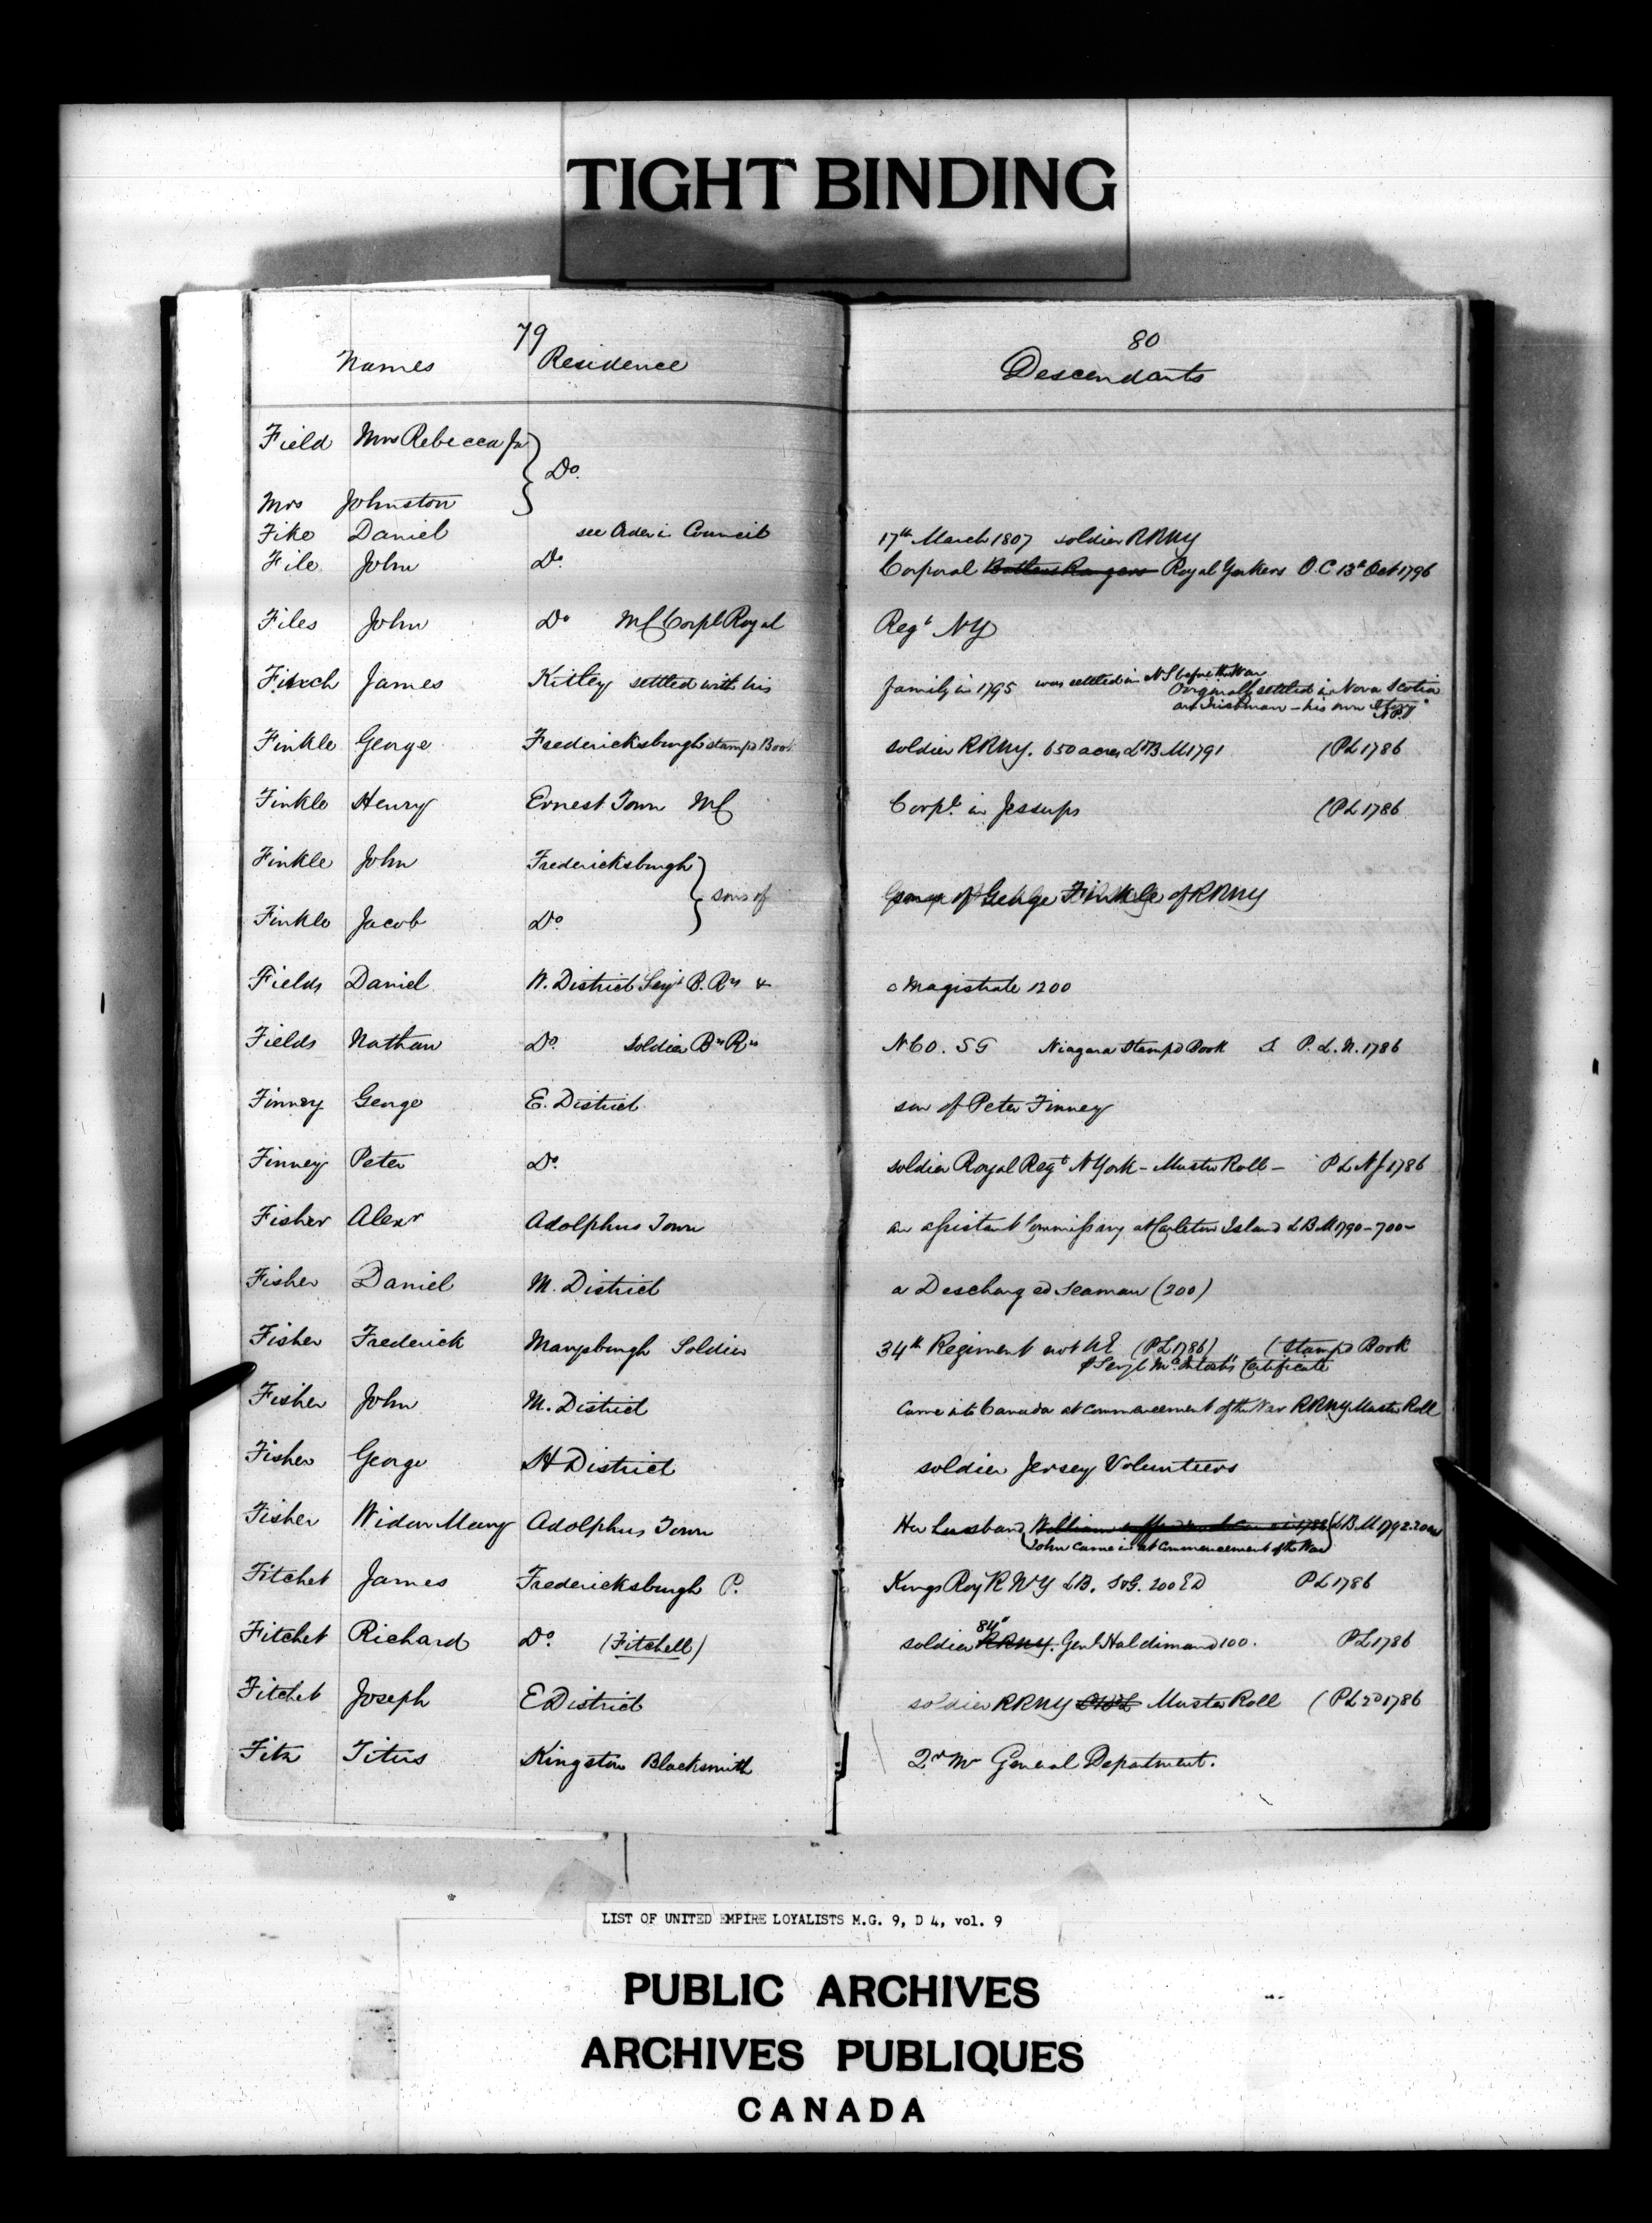 TIGHT BINDING
79
80
Names Residence Descendants
Field Mrs Rebecca Ja
Do.
Mrs Johnston
Fike Daniel see Order in Council 17th March 1807 soldier RRNY
File John Do. Corporal Butlers Rangers Royal Yorkers O.C 13th Oct 1796
Files John Do MC Corpl Royal Regt NY
Finch James Kitley settled with his family in 1795 was settled in NS before the War
Originally settled in Nova Scotia
an Irishman - his own Story
Finkle George Fredericksburgh stamp'd Book soldier RRNY. 650 acres LBM 1791 (PL 1786
Finkle Henry Ernest Town MC Corpl. in Jessups (PL 1786
Finkle John Fredericksburgh
sons of George Finkle of RRNY
Finkle Jacob Do.
Fields Daniel W. District Serjt B. Rs & a Magistrate 1200
Fields Nathan Do. soldier Bs Rs NCO. SG Niagara Stamp'd Book S P. L. N. 1786
Finney George E. District son of Peter Finney
Finney Peter Do. soldier Royal Regt N York - Muster Roll - PL NJ 1786
Fisher Alexr Adolphus Town an assistant Commissary at Carleton Island LBM 1790 - 700 -
Fisher Daniel M. District a Descharged seaman (200)
Fisher Frederick Marysburgh Soldier 34th Regiment not UE (PL 1786) (Stamp'd Book
& Serjt McIntosh's Certificate
Fisher John M. District Came into Canada at commencement of the War RRNY Muster Roll
Fisher George H District soldier Jersey Volunteers
Fisher Widow Mary Adolphus Town Her husband William LBM 1792. 200
(John came in at commencement of the War)
Fitchet James Fredericksburgh P. Kings Roy R NY LB. S&G. 200 ED PL 1786
84th
Fitchet Richard Do. (Fitchell) soldier RRNY. Genl Haldimand 100. PL 1786
Fitchet Joseph E District soldier RRNY Muster Roll (PL 2d 1786
Fitz Titus Kingston Blacksmith Qr Mr General Department.
LIST OF UNITED EMPIRE LOYALISTS M.G. 9, D 4, vol. 9
PUBLIC ARCHIVES
ARCHIVES PUBLIQUES
CANADA